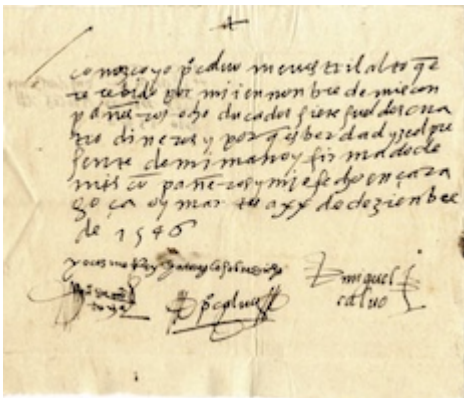 conozco yo pº calvo menestril alto q̃
re rebido por mi i en nonbre de mis con
pañeros ocho ducados siete sueldos cua
tro dineros y por q̃ es berdad yze el pre
sente de mi mano y firmado de
mis cõ pañeros y mi efecho en çara
goça oy martes a xx de dezienbre
de 1546
pº calvo
miguel
calvo